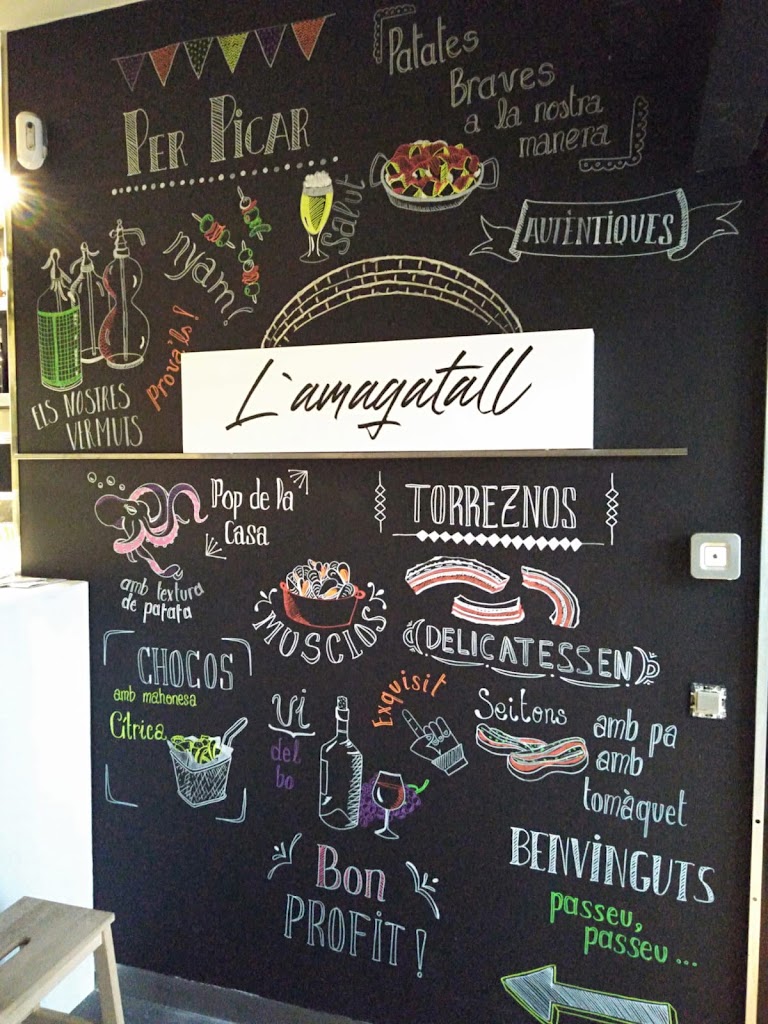 PER PICAR
Patates
Braves
a la nostra
manera
Salut
AUTÈNTIQUES
nyam!
Prova'ls!
ELS NOSTRES
VERMUTS
L'amagatall
Pop de la
Casa
amb textura
de patata
TORREZNOS
MUSCLOS
DELICATESSEN
CHOCOS
amb mahonesa
Cítrica
Vi
del
bo
Exquisit
Seitons
amb pa
amb
tomàquet
Bon
PROFIT!
BENVINGUTS
passeu,
passeu...